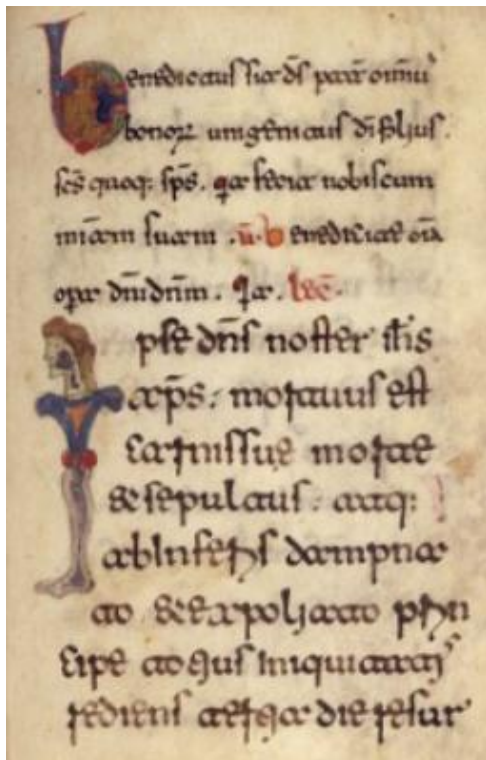 Benedictus sit ds pater omniu
bonoꝝ unigenitus di filius.
scs quoq; sps. q̄a fecit nobiscum
miam suam. v. Benedicite oia
opera dni dnm. Qa. Lec.
Ipse dns noster ihs
xps: mortuus est
morte
et sepultus. atq:
ab inferis dampna
to et expoliato prin
cipe totius iniquitatis
rediens tertia die resur